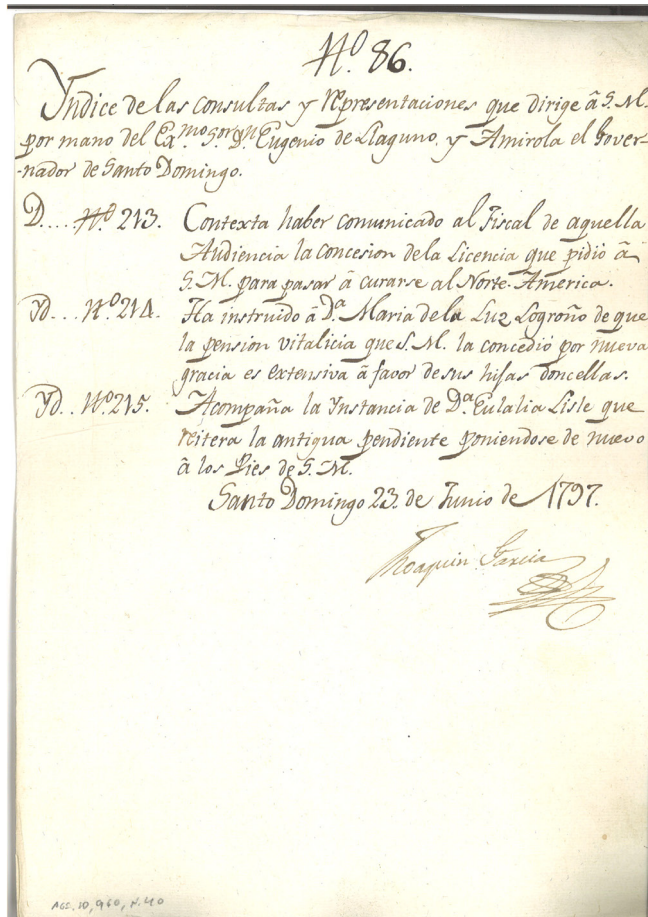 N.º 86.
Yndice de las consultas y representaciones que dirige â S. M.
por mano del Ex.mo S.or D.n Eugenio de Llaguno, y Amirola el Gover-
-nador de Santo Domingo.
D.... N.º 213. Contexta haber comunicado al Fiscal de aquella
Audiencia la concesion dela Licencia que pidio â
S. M. para pasar â curarse al Norte-America.
Yd... N.º 214. Ha instruido â D.a Maria dela Luz Logroño de que
la pension vitalicia que S. M. la concedio por nueva
gracia es extensiva â favor de sus hijas doncellas.
Yd.. N.º 215. Acompaña la Ynstancia de D.a Eulalia Lisle que
reitera la antigua pendiente poniendose de nuevo
â los Pies de S. M.
Santo Domingo 23. de Junio de 1797.
Joaquin Garcia
AGS, 10, 960, N. 40